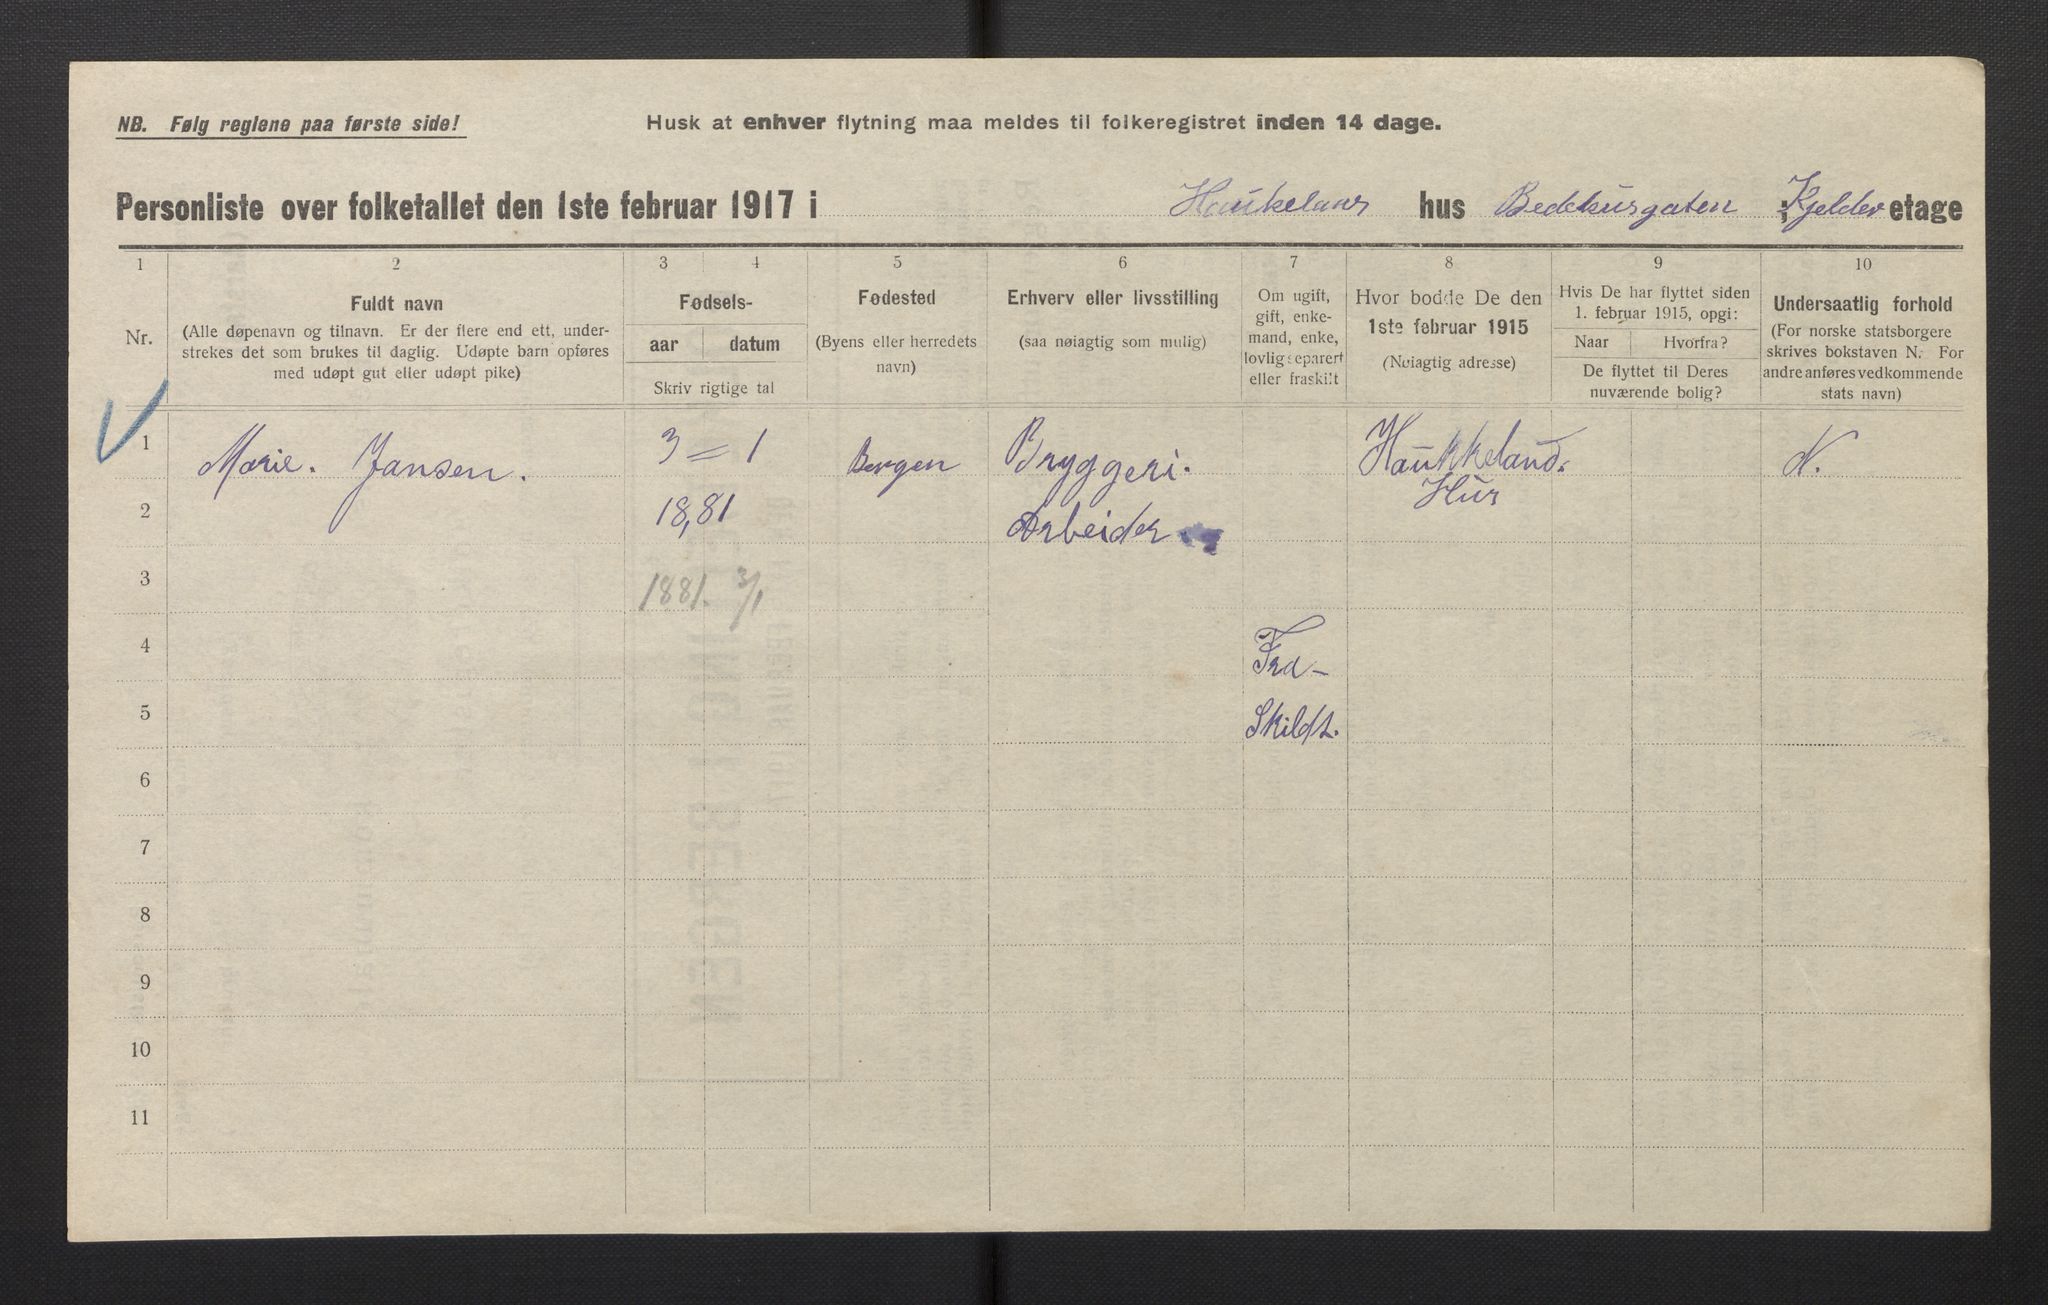 NB. Følg reglene paa første side!
Husk at enhver flytning maa meldes til folkeregistret inden 14 dage.
Personliste over folketallet den 1ste februar 1917 i Haukelaas hus Bedehusgaten ; Kjelder etage
1 2 3 4 5 6 7 8 9 10
Nr.
Fuldt navn
(Alle døpenavn og tilnavn. Er der flere end ett, under-
strekes det som brukes til daglig. Udøpte barn opføres
med udøpt gut eller udøpt pike)
Fødsels-
aar datum
Skriv rigtige tal
Fødested
(Byens eller herredets
navn)
Erhverv eller livsstilling
(saa nøiagtig som mulig)
Om ugift,
gift, enke-
mand, enke,
lovlig separert
eller fraskilt
Hvor bodde De den
1ste februar 1915
(Nøiagtig adresse)
Hvis De har flyttet siden
1. februar 1915, opgi:
Naar Hvorfra?
De flyttet til Deres
nuværende bolig?
Undersaatlig forhold
(For norske statsborgere
skrives bokstaven N. For
andre anføres vedkommende
stats navn)
1 Marie. Jansen. 3 = 1 Bergen Bryggeri. Haukkeland. N.
2 18,81 Arbeider Hus
3 1881. 3/1
4 Fra-
5 Skildt.
6
7
8
9
10
11